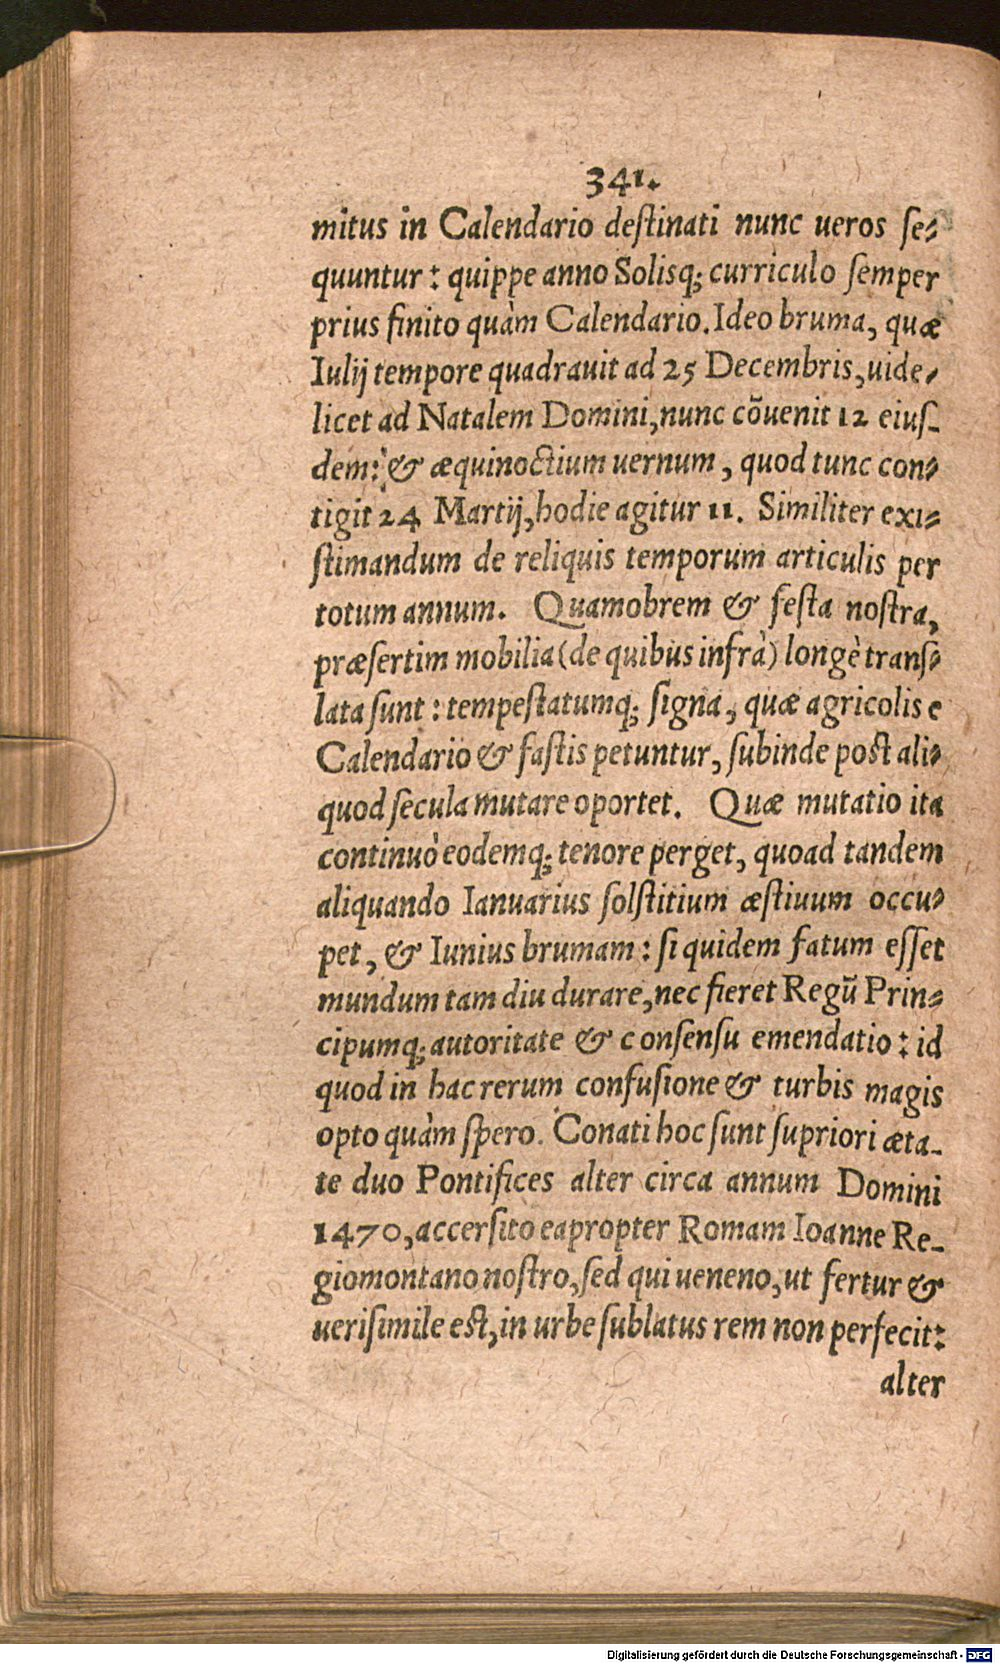 341.
mitus in Calendario deſtinati nunc ueros ſe-
quuntur: quippe anno Solisq; curriculo ſemper
prius finito quàm Calendario. Ideo bruma, quæ
Iulij tempore quadrauit ad 25 Decembris, uide-
licet ad Natalem Domini, nunc cōuenit 12 eiuſ-
dem: & æquinoctium uernum, quod tunc con-
tigit 24 Martij, hodie agitur 11. Similiter exi-
ſtimandum de reliquis temporum articulis per
totum annum. Quamobrem & feſta noſtra,
præſertim mobilia (de quibus infrà) longè tranſ-
lata ſunt: tempeſtatumq; ſigna, quæ agricolis e
Calendario & faſtis petuntur, ſubinde poſt ali-
quod ſecula mutare oportet. Quæ mutatio ita
continuò eodemq; tenore perget, quoad tandem
aliquando Ianuarius ſolſtitium æſtiuum occu-
pet, & Iunius brumam: ſi quidem fatum eſſet
mundum tam diu durare, nec fieret Regū Prin-
cipumq; autoritate & conſenſu emendatio: id
quod in hac rerum confuſione & turbis magis
opto quàm ſpero. Conati hoc ſunt ſupriori æta-
te duo Pontifices alter circa annum Domini
1470, accerſito eapropter Romam Ioanne Re-
giomontano noſtro, ſed qui ueneno, ut fertur &
ueriſimile eſt, in urbe ſublatus rem non perfecit:
alter
Digitalisierung gefördert durch die Deutsche Forschungsgemeinschaft - DFG